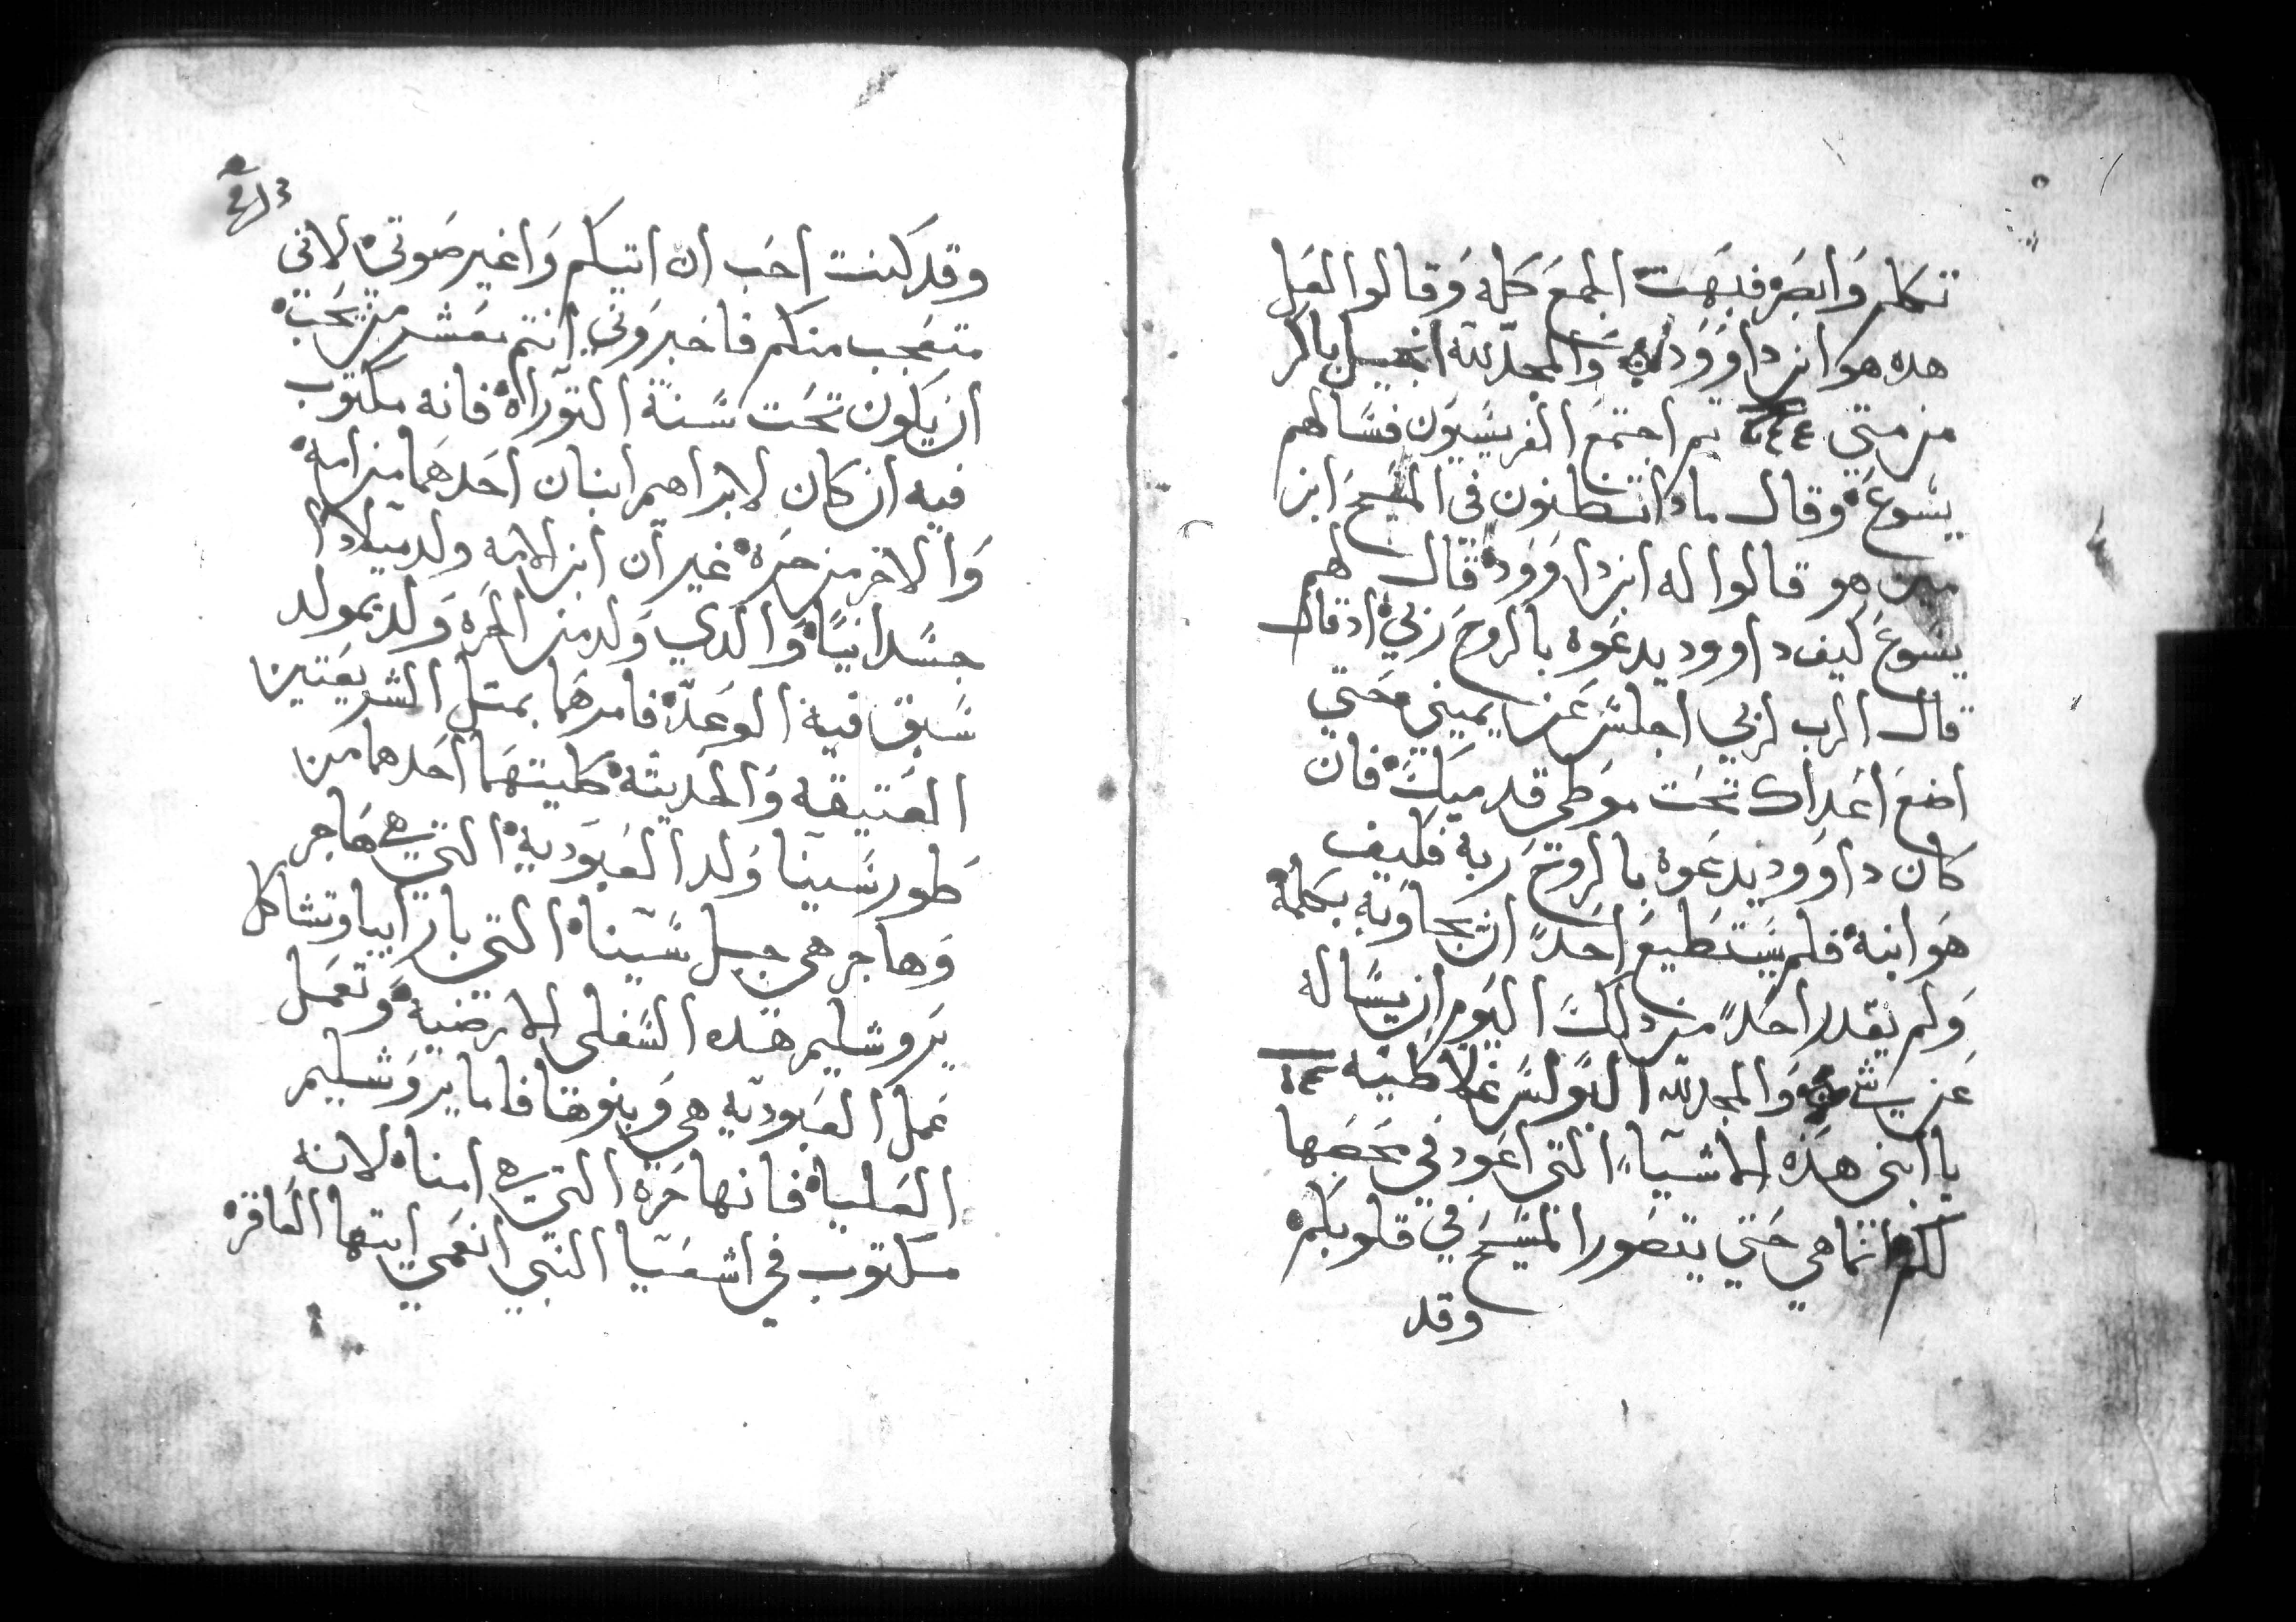 تكلم وَابصَرَ فبهَت الجمعَ كله وَقالوا لعَل
هده هو ابن داوُوَد وَالمجد لله انجيل باكر
من متي ثم اجتمعَ الفريسَيوَن فسَالهم
يسَوعَ وقال مادا تظنون في المسَيحَ ابن
من هو قالوا له ابن داوَوَد قال لهم
يسَوعَ كيف داوود يدعَوه بالروحَ ربي اد قال
قال الرب لربي اجلسَ عَن يميني حَتي
اضعَ اعَداك تحَت موَطي قدميَكَ فان
كان داوَود يدعَوه بالروحَ ربه فكيف
هوَ ابنه فلم يسَتطيعَ احَدًا ان يجاوَبه بكلمة
وَلم يقدر احَدًا من دلكَ اليَوم ان يسَاله
عَن شي وَالمجد لله البَولسَ غلاطيه
يا ابني هَذه الاشيَاءً التي اعَود في مخضها
لكم انما هي حَتي يتصَور المسَيحَ في قلوبكم
وقد
وقد كنت احَب ان اتيكم وَاغير صَوتي لاني
متعَجب منكم فاخبروَني انتم معَشر من يحَب
ان يكون تحَت سَنَة التوَراه فانه مكتوب
فيه ان كان لابراهيم ابنان احَدهَما من امة
وَالاخر من حَرَه غير ان ابن الامه ولد ميلادا
جسَدانيًا وَالدي وَلد من الحَرَه وَلد بمولد
سَبق فيه الوعَد فامرهَما بمثل الشريعَتين
العَتيقه وَالحَديثه كليتهَما احَدهما من
طور سَينا وَلد العَبوَديه التي هي هَاجر
وَهاجر هي جبل سَينا التي بارابيا وتشاكل
يرَوشليم هَده السَفلي الارَضيه وَتعَمل
عَمل العَبوديه هي وَبنوها فاما يروَشليم
العَليا فانها حَرَه التي هي امنا لانه
مكتوب في اشعَيا النبي انعَمي ايتها العَاقر